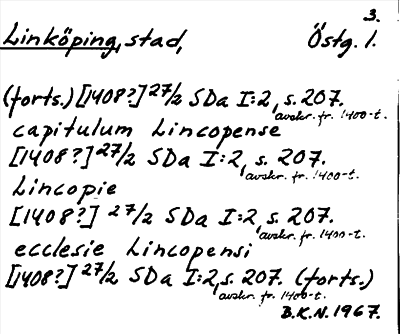 3.
Linköping, stad, Östg. 1.
(forts.) [1408?] 27/2 SDa I:2, s. 207.
avskr. fr. 1400-t.
capitulum Lincopense
[1408?] 27/2 SDa I:2, s. 207.
avskr. fr. 1400-t.
Lincopie
[1408?] 27/2 SDa I:2, s. 207.
avskr. fr. 1400-t.
ecclesie Lincopensi
[1408?] 27/2 SDa I:2, s. 207. (forts.)
avskr. fr. 1400-t.
B.K.N. 1967.